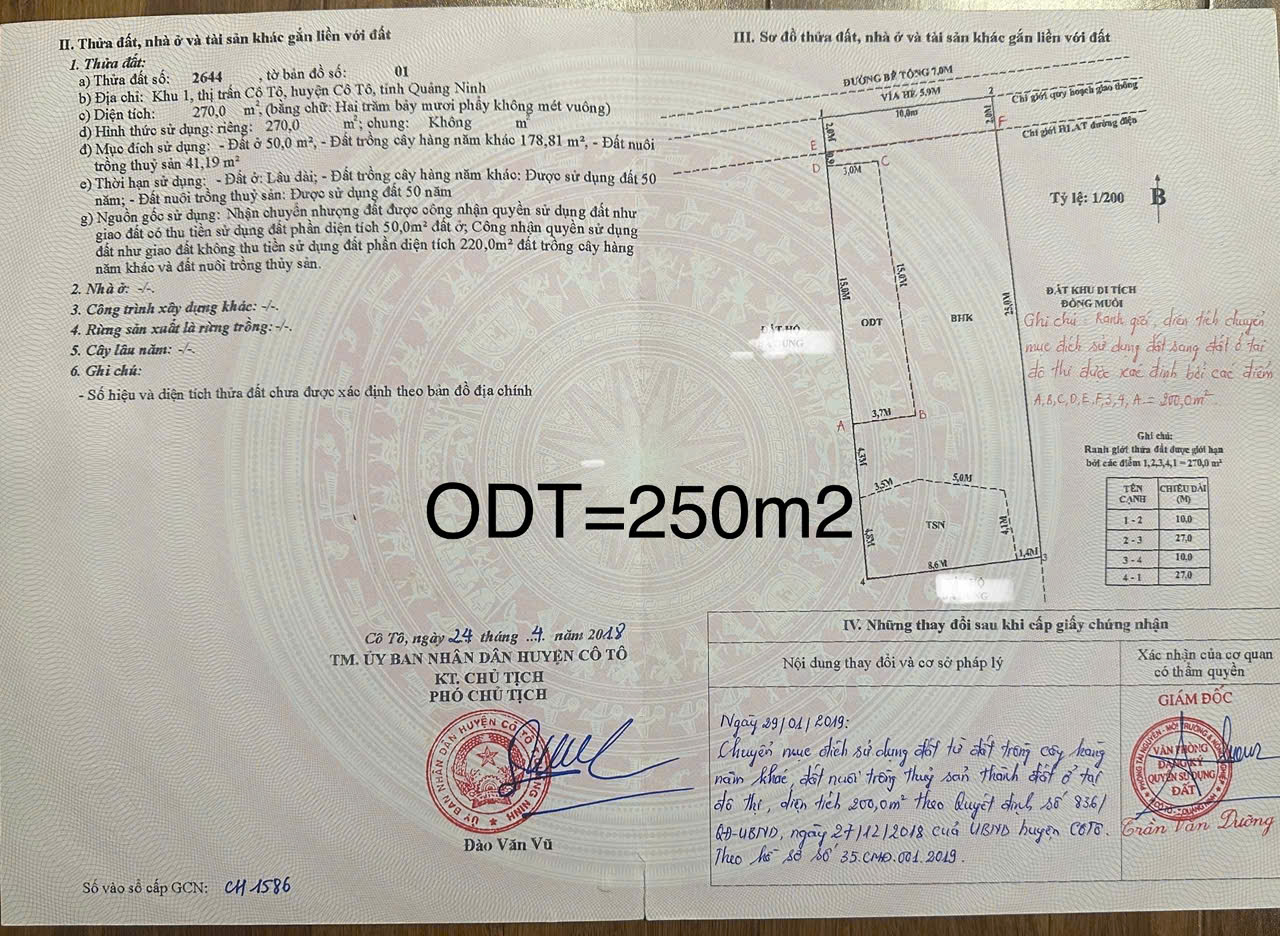 II. Thửa đất, nhà ở và tài sản khác gắn liền với đất
1. Thửa đất:
a) Thửa đất số: 2644 , tờ bản đồ số: 01
b) Địa chỉ: Khu 1, thị trấn Cô Tô, huyện Cô Tô, tỉnh Quảng Ninh
c) Diện tích: 270,0 m², (bằng chữ: Hai trăm bảy mươi phẩy không mét vuông)
d) Hình thức sử dụng: riêng: 270,0 m²; chung: Không m²
đ) Mục đích sử dụng: - Đất ở 50,0 m², - Đất trồng cây hàng năm khác 178,81 m², - Đất nuôi
trồng thuỷ sản 41,19 m²
e) Thời hạn sử dụng: - Đất ở: Lâu dài; - Đất trồng cây hàng năm khác: Được sử dụng đất 50
năm; - Đất nuôi trồng thuỷ sản: Được sử dụng đất 50 năm
g) Nguồn gốc sử dụng: Nhận chuyển nhượng đất được công nhận quyền sử dụng đất như
giao đất có thu tiền sử dụng đất phần diện tích 50,0m² đất ở; Công nhận quyền sử dụng
đất như giao đất không thu tiền sử dụng đất phần diện tích 220,0m² đất trồng cây hàng
năm khác và đất nuôi trồng thủy sản.
2. Nhà ở: -/-.
3. Công trình xây dựng khác: -/-.
4. Rừng sản xuất là rừng trồng: -/-.
5. Cây lâu năm: -/-.
6. Ghi chú:
- Số hiệu và diện tích thửa đất chưa được xác định theo bản đồ địa chính
ODT=250m2
Cô Tô, ngày 24 tháng ..4. năm 2018
TM. ỦY BAN NHÂN DÂN HUYỆN CÔ TÔ
KT. CHỦ TỊCH
PHÓ CHỦ TỊCH
ỦY BAN NHÂN DÂN HUYỆN CÔ TÔ
Đào Văn Vũ
Số vào sổ cấp GCN: CH 1586
III. Sơ đồ thửa đất, nhà ở và tài sản khác gắn liền với đất
ĐƯỜNG BÊ TÔNG 7,0M
VỈA HÈ 5,9M
Chỉ giới quy hoạch giao thông
1
10,0m
2
2,0M
2,0M
F
Chỉ giới HLAT đường điện
E
0,9
D
3,0M
C
Tỷ lệ: 1/200
B
15,0M
15,0M
ODT
BHK
25,0M
ĐẤT KHU DI TÍCH
ĐỒNG MUỐI
ĐẤT HỘ
Ghi chú: Ranh giới, diện tích chuyển
mục đích sử dụng đất sang đất ở tại
đô thị được xác định bởi các điểm
A,B,C,D,E,F,3,4,A = 200,0m².
3,7M
A
B
4,3M
3,5M
5,0M
TSN
4,8M
4,1M
8,6M
1,4M
3
4
Ghi chú:
Ranh giới thửa đất được giới hạn
bởi các điểm 1,2,3,4,1 = 270,0 m²
TÊN CẠNH CHIỀU DÀI (M)
1 - 2 10,0
2 - 3 27,0
3 - 4 10,0
4 - 1 27,0
IV. Những thay đổi sau khi cấp giấy chứng nhận
Nội dung thay đổi và cơ sở pháp lý
Xác nhận của cơ quan
có thẩm quyền
Ngày 29/01/2019:
Chuyển mục đích sử dụng đất từ đất trồng cây hàng
năm khác, đất nuôi trồng thuỷ sản thành đất ở tại
đô thị, diện tích 200,0m² theo Quyết định số 836/
QĐ-UBND, ngày 27/12/2018 của UBND huyện Cô Tô.
Theo hồ sơ số 35.CMĐ.001.2019.
GIÁM ĐỐC
VĂN PHÒNG
ĐĂNG KÝ
QUYỀN SỬ DỤNG
ĐẤT
Trần Văn Dường